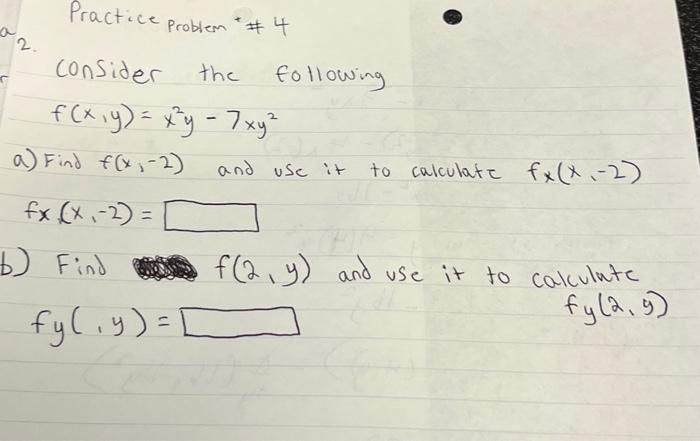 Practice Problem # 4
2.
Consider the following
f(x,y) = x²y - 7xy²
a) Find f(x,-2) and use it to calculate fx(x,-2)
fx(x,-2) =
b) Find f(2,y) and use it to calculate
fy(2,y)
fy( ,y) =